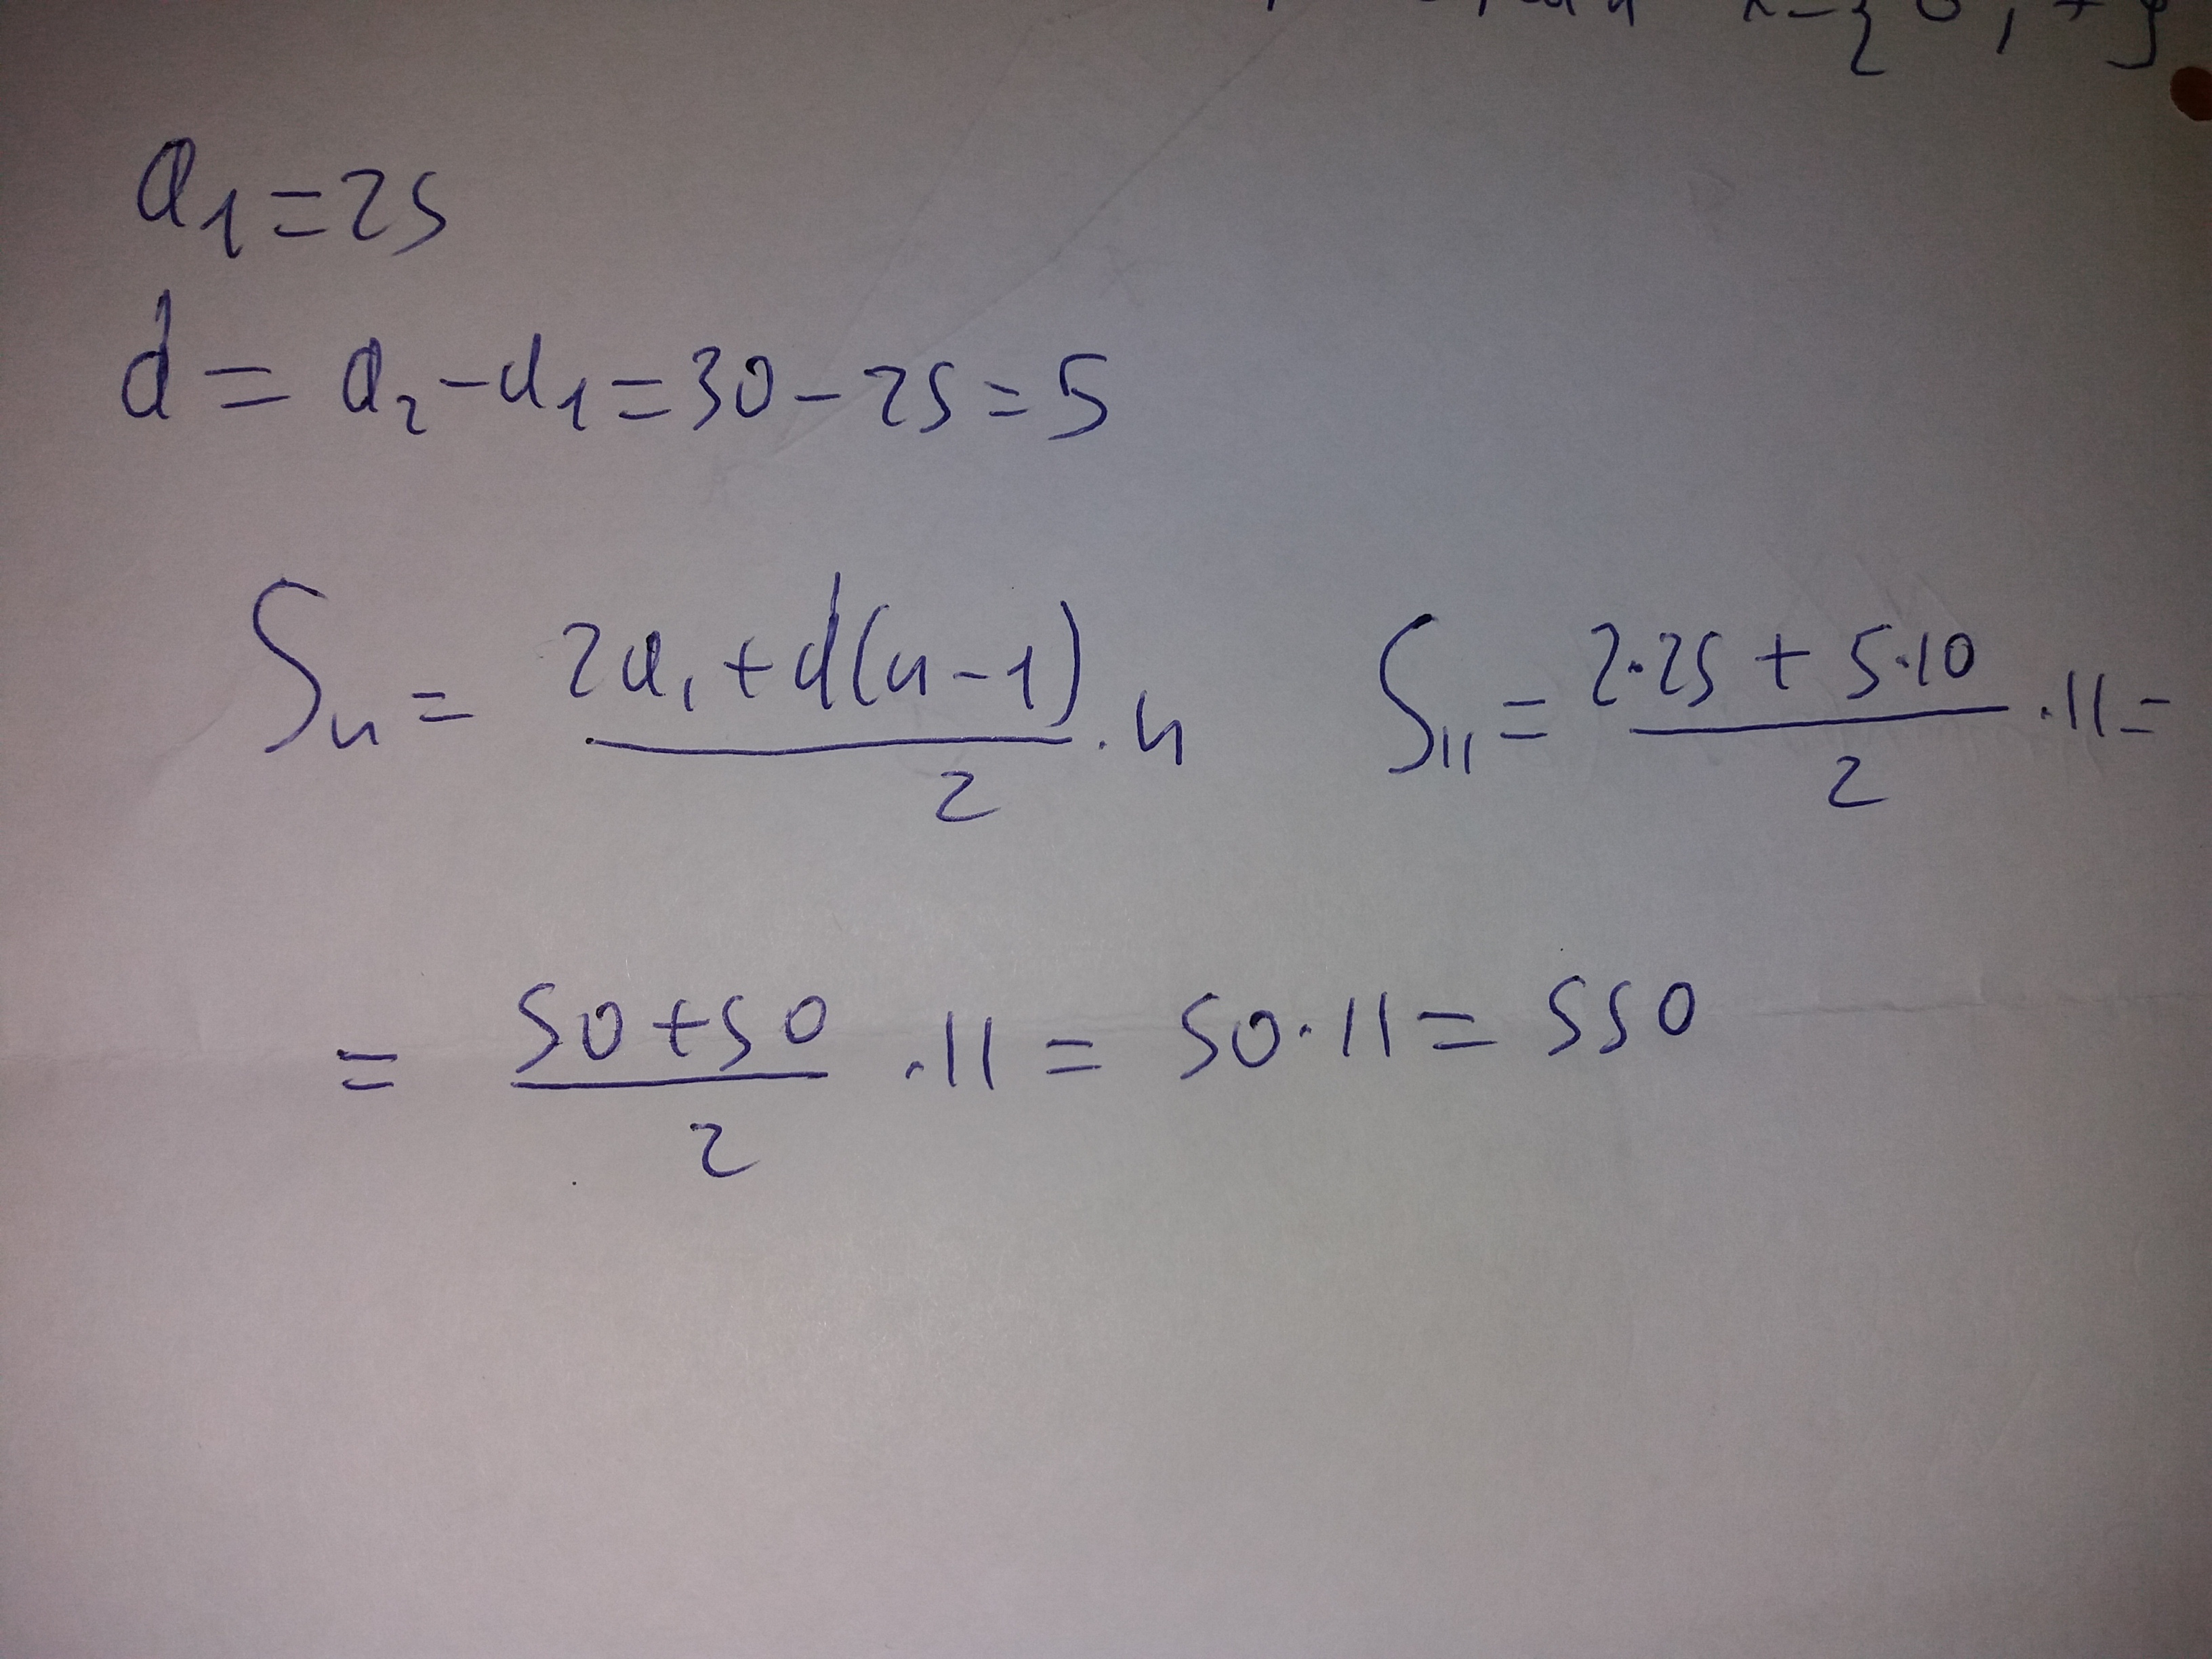 a₁=25
d = a₂-a₁=30-25=5
Sₙ = (2a₁+d(n-1))/2 ·n S₁₁ = (2·25 + 5·10)/2 ·11=
= (50+50)/2 ·11 = 50·11= 550